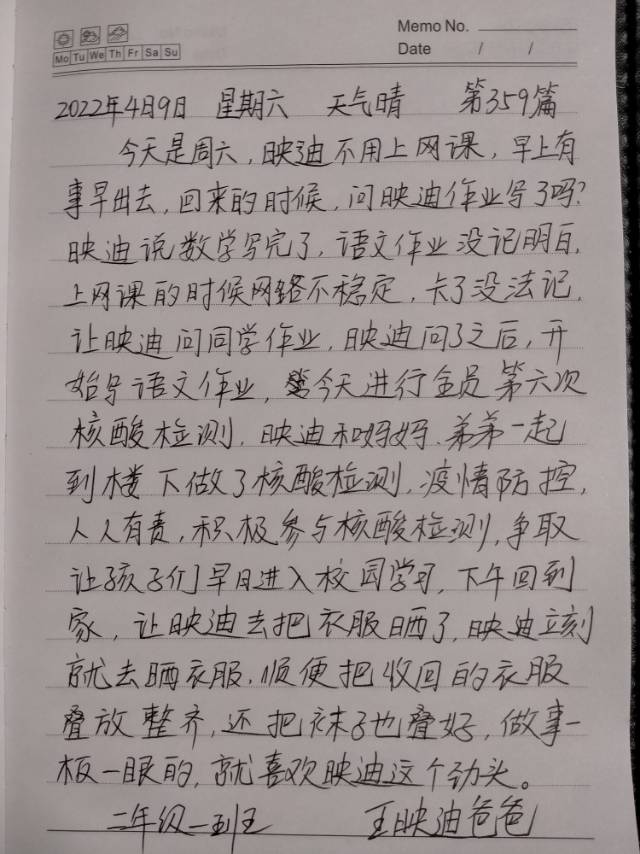 Memo No.
Mo Tu We Th Fr Sa Su
Date / /
2022年4月9日 星期六 天气晴 第359篇
今天是周六，映迪不用上网课，早上有
事早出去，回来的时候，问映迪作业写了吗？
映迪说数学写完了，语文作业没记明白，
上网课的时候网络不稳定，卡了没法记，
让映迪问同学作业，映迪问了之后，开
始写语文作业，今天进行全员第六次
核酸检测，映迪和妈妈、弟弟一起
到楼下做了核酸检测，疫情防控，
人人有责，积极参与核酸检测，争取
让孩子们早日进入校园学习，下午回到
家，让映迪去把衣服晒了，映迪立刻
就去晒衣服，顺便把收回的衣服
叠放整齐，还把袜子也叠好，做事一
板一眼的，就喜欢映迪这个劲头。
二年级一班 王映迪爸爸